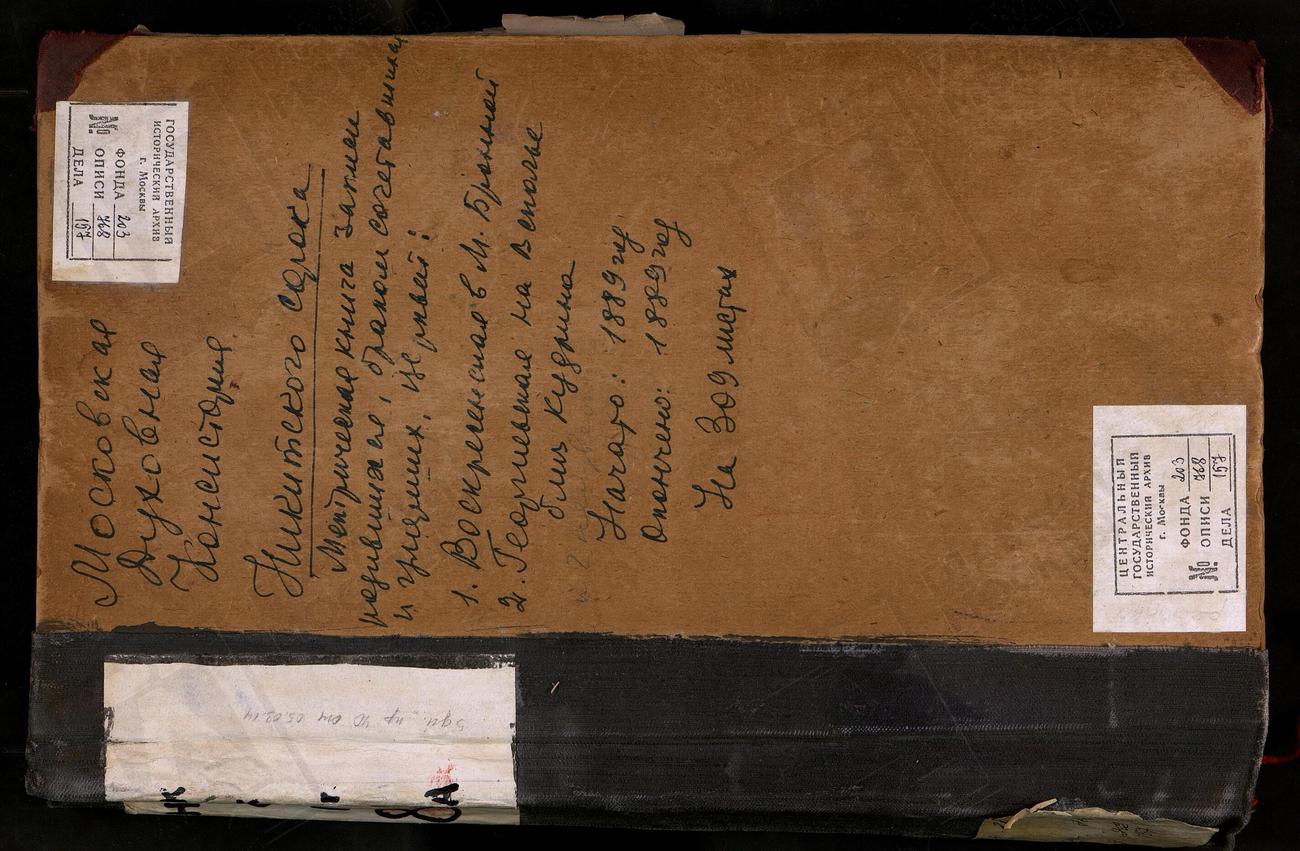 Московская
Духовная
Консистория
Никитского сорока
Метрическая книга записи
родившихся, браком сочетавшихся
и умерших, церквей:
1. Воскресенская в М. Бронной
2. Георгиевская на Всполье
близ Кудрина
Начато: 1889 год
Окончено: 1889 год
На 309 листах
ГОСУДАРСТВЕННЫЙ
ИСТОРИЧЕСКИЙ АРХИВ
г. Москвы
ФОНДА 203
№ ОПИСИ 768
ДЕЛА 157
ЦЕНТРАЛЬНЫЙ
ГОСУДАРСТВЕННЫЙ
ИСТОРИЧЕСКИЙ АРХИВ
г. Москвы
ФОНДА 203
№ ОПИСИ 768
ДЕЛА 157
пр 40 от 05.02.14